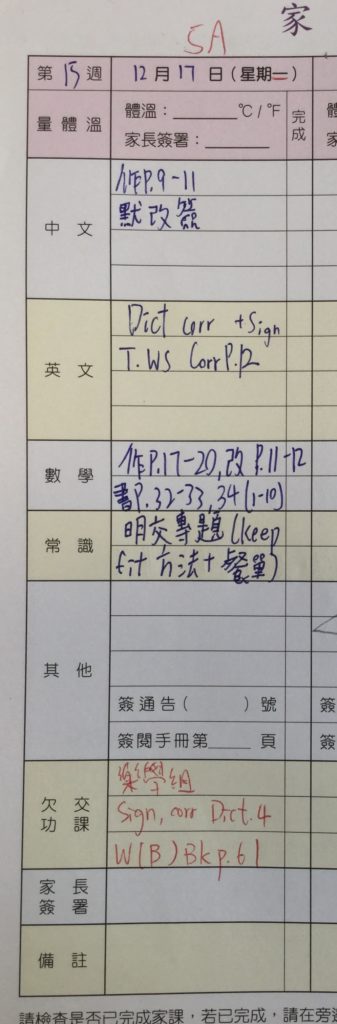 家
5A
第 15 週 12 月 17 日 (星期二)
量體溫 體溫：______ ℃ / ℉ 完成
家長簽署：______
中文 作P.9-11
默改簽
英文 Dict corr +Sign
T. WS Corr P.12
數學 作P.17-20,改P.11-12
書P.32-33,34(1-10)
常識 明交專題(keep
fit 方法+餐單)
其他
簽通告( ) 號 簽
簽閱手冊第____頁 簽
欠交功課
Sign, corr Dict.4
W(B) Bk p.61
家長簽署
備註
請檢查是否已完成家課，若已完成，請在旁